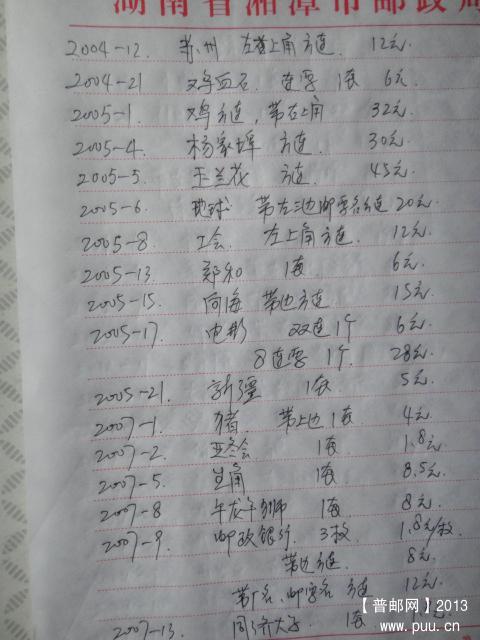 湖南省湘潭市邮政局
2004-12 苏州 左首上角方连 12元
2004-21 鸡血石 连票 1套 6元
2005-1 鸡方连,带右上角 32元
2005-4. 杨家埠 方连 30元
2005-5. 玉兰花 方连 45元
2005-6. 地球 带左三边邮票名方连 20元
2005-8 工会 左上角方连 12元
2005-13 郑和 1套 6元
2005-15. 向海 带边方连 15元
2005-17. 电影 双连1个 6元
8连票 1个 28元
2005-21 新疆 1套 5元
2007-1. 猪 带上边1套 4元
2007-2. 亚冬会 1套 1.8元
2007-5. 生角 1套 8.5元
2007-8 午龙午狮 1套 8元
2007-9. 邮政银行 3枚 1.8元/枚
带边方连 8元
带厂名、邮票名方连 12元
2007-13. 同济大学 1套
【普邮网】2013
www.puu.cn